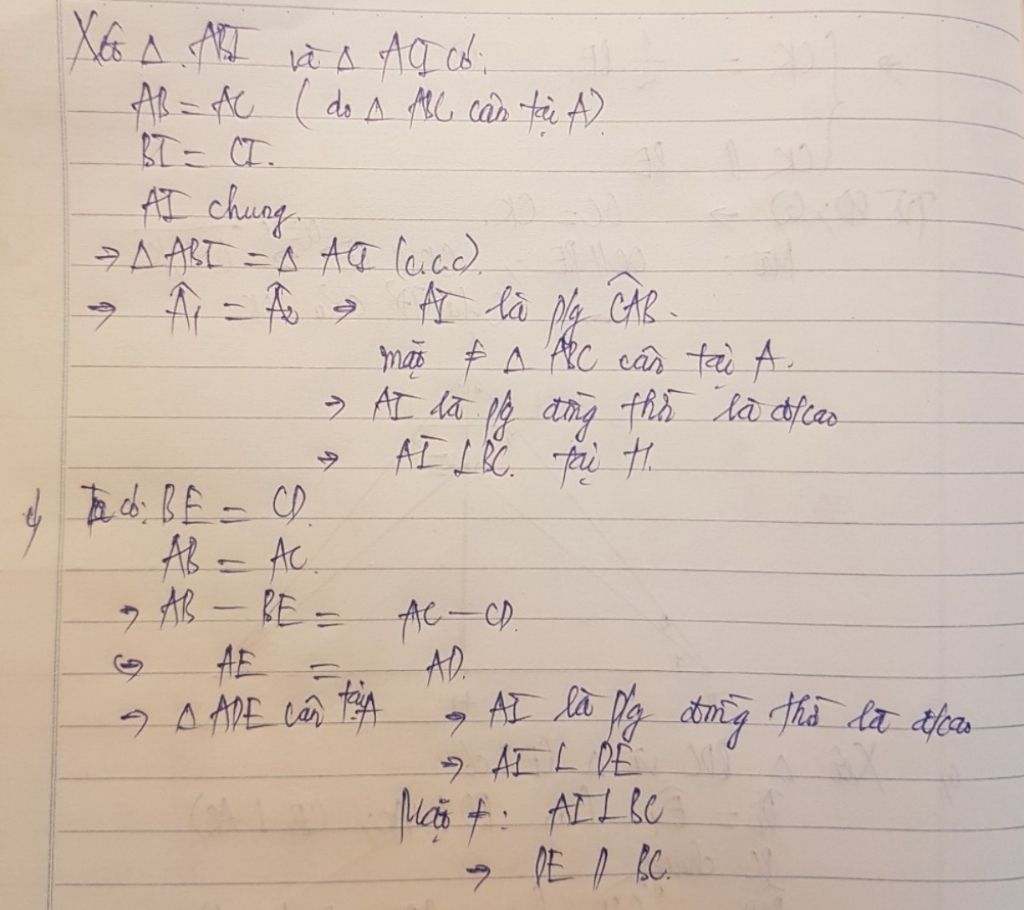 Xét △ ABI và △ ACI có:
AB = AC ( do △ ABC cân tại A)
BI = CI.
AI chung.
⇒ △ ABI = △ ACI (c.c.c)
⇒ Â₁ = Â₂ ⇒ AI là p/g ĈAB.
mặt ≠ △ ABC cân tại A.
⇒ AI là p/g đồng thời là đ/cao
⇒ AI ⊥ BC. tại H.
Ta có: BE = CD.
AB = AC.
⇒ AB − BE = AC − CD.
⇔ AE = AD.
⇒ △ ADE cân tại A ⇒ AI là p/g đồng thời là đ/cao
⇒ AI ⊥ DE
Mặt ≠: AI ⊥ BC
⇒ DE // BC.